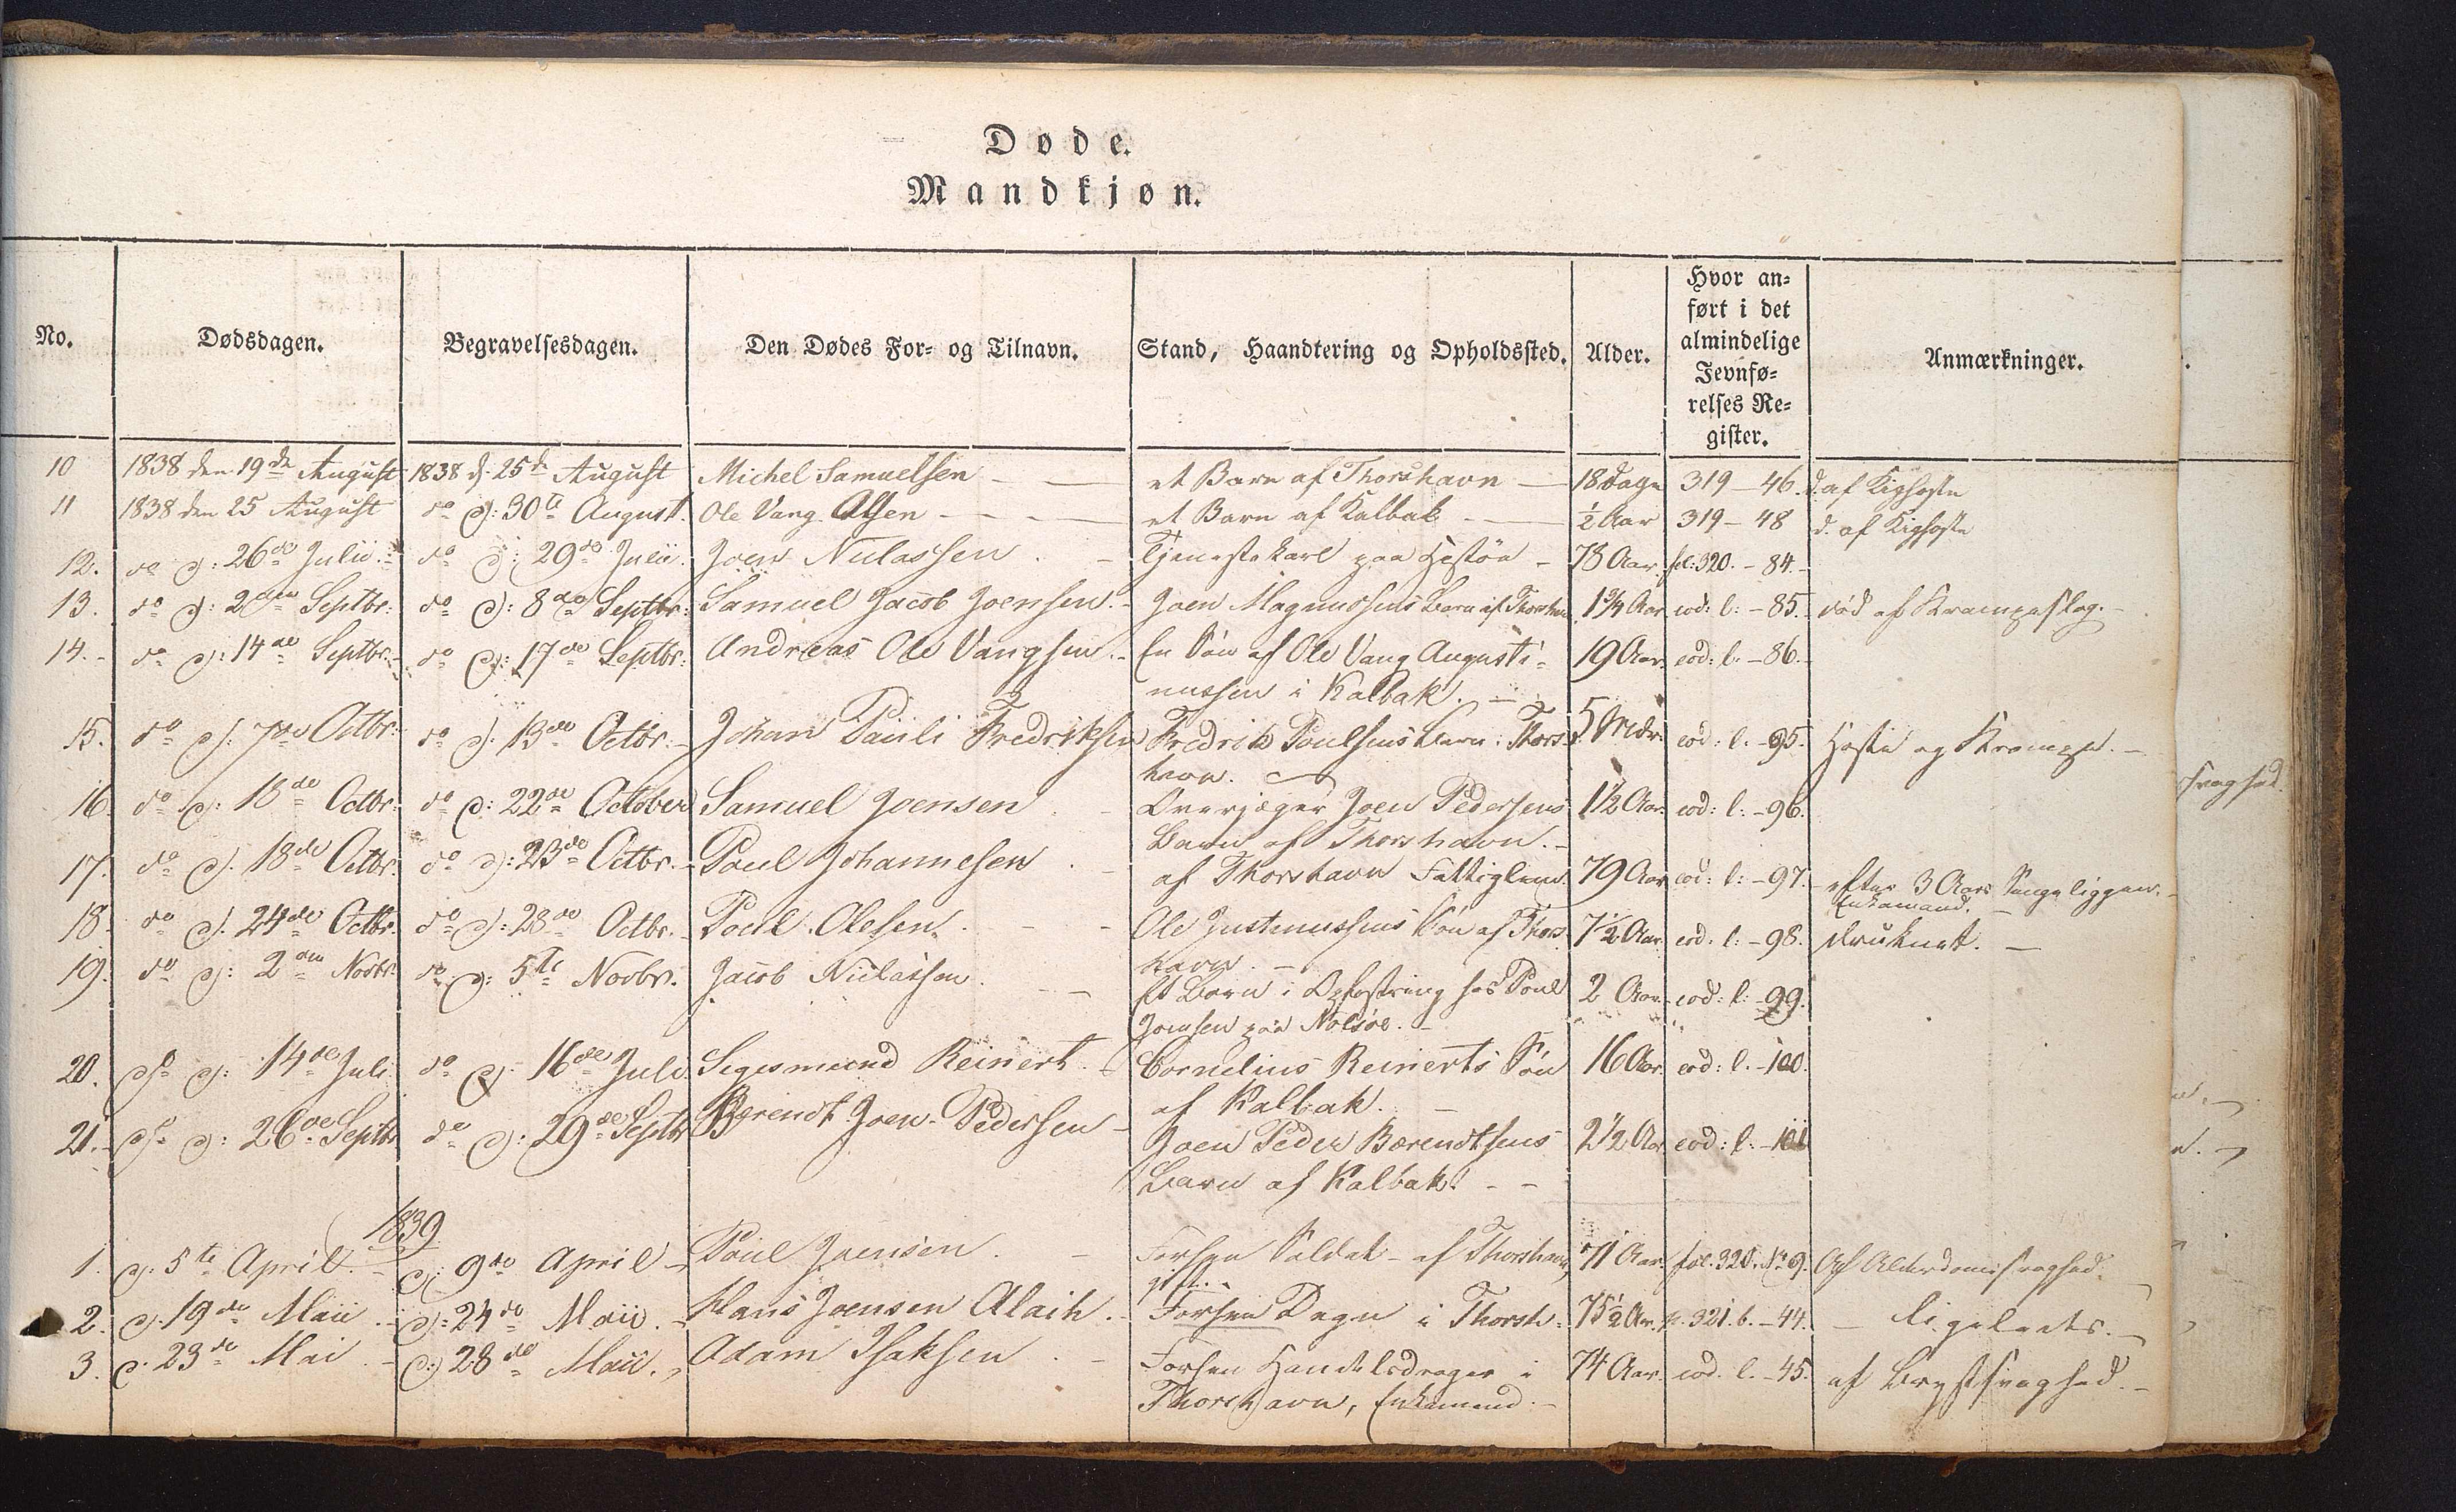 Døde.
Mandkjøn.
No. Dødsdagen. Begravelsesdagen. Den Dødes For- og Tilnavn. Stand, Haandtering og Opholdssted. Alder. Hvor an-
ført i det
almindelige
Jevnfø-
relses Re-
gister. Anmærkninger.
10 1838 den 19de August 1838 d: 25de August Michel Samuelsen et Barn af Thorshavn 18 Dage 319 - 46. d. af Kighoste
11 1838 den 25 August do d: 30te August. Ole Vang Olsen et Barn af Kalbak ½ Aar 319 - 48 d. af Kighoste
12. do d: 26de Julii. do d: 29de Julii. Joen Niclassen. Tjenestekarl paa Hestöe 78 Aar fol: 320. - 84.
13. do d: 2den Septbr: do d: 8de Septbr: Samuel Jacob Joensen. Joen Magnussens Barn af Thorshavn 1¾ Aar eod: l: - 85. död af Krampeslag.
14. do d: 14de Septbr. do d: 17de Septbr: Andreas Ole Vangsen. En Sön af Ole Vang Augusti-
nussen i Kalbak. 19 Aar. eod: l. - 86.
15. do d. 7de Octbr: do d. 13de Octbr: Johan Pauli Fredriksen Fredrik Poulsens Barn i Thors-
havn. 5 Mdr. eod: l. - 95. Hoste og Krampe.
16. do d: 18de Octbr: do d: 22de October Samuel Joensen Overjæger Joen Pedersens
Barn af Thorshavn. 1½ Aar. eod: l. - 96.
17. do d. 18de Octbr. do d: 23de Octbr. Poul Johannesen af Thorshavn Fattiglem. 79 Aar eod: l: - 97. efter 3 Aars Sengeliggen.
Enkemand.
18. do d. 24de Octbr. do d: 28de Octbr. Poul Olesen. Ole Justinussens Sön af Thors-
havn. 7½ Aar. eod. l: - 98. druknet.
19. do d: 2den Novbr. do d: 5te Novbr. Jacob Niclassen. Et Barn i Opfostring hos Poul
Joensen paa Nolsöe. 2 Aar. eod: l: - 99.
20. do d: 14de Juli do d. 16de Juli Segesmund Reinert. Cornelius Reinerts Sön
af Kalbak. 16 Aar. eod: l. - 100.
21. do d: 26de Septbr do d: 29de Septbr Berendt Joen Pedersen Joen Peder Berendtsens
Barn af Kalbak. 2½ Aar eod: l. - 101
1839.
1. d. 5te April. d: 9de April Poul Joensen. Forhen Soldat af Thorshavn, 71 Aar. fol. 320. No 9. Af Alderdomssvaghed.
2. d. 19de Maii d: 24de Maii. Hans Joensen Forhen Degn i Thorsh: 75½ Aar. p. 321. b. - 44. ligeleets.
3. d. 23de Mai d: 28de Maii. Adam Isaksen Forhen Handelsdrager i
Thorshavn, Enkemand. 74 Aar. eod. l. - 45. af Brystsvaghed.